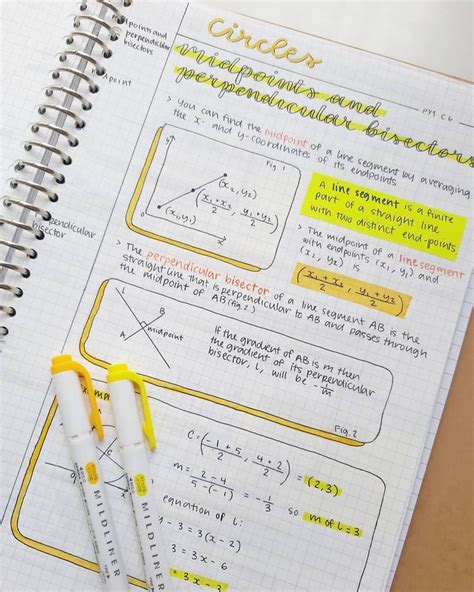 Circles
midpoints and
perpendicular bisectors
PM C6
points and
perpendicular
bisectors
point
perpendicular
bisector
> You can find the midpoint of a line segment by averaging
the x- and y-coordinates of its endpoints
Fig 1
y
(x₂, y₂)
(x₁+x₂/2, y₁+y₂/2)
(x₁, y₁)
0
x
A line segment is a finite
part of a straight line
with two distinct end-points.
> The midpoint of a line segment
with endpoints (x₁, y₁) and
(x₂, y₂) is
(x₁+x₂/2, y₁+y₂/2)
> The perpendicular bisector of a line segment AB is the
straight line that is perpendicular to AB and passes through
the midpoint of AB (Fig. 2)
L
B
A
midpoint
If the gradient of AB is m then
the gradient of its perpendicular
bisector, L, will be -1/m
Fig. 2
C
C = (-1+5/2, 4+2/2) = (2,3)
m = 2-4/5-(-1) = -1/3 so m of l = 3
equation of l:
y-3=3(x-2)
= 3x-6
= 3x-3
MILDLINER
MILDLINER